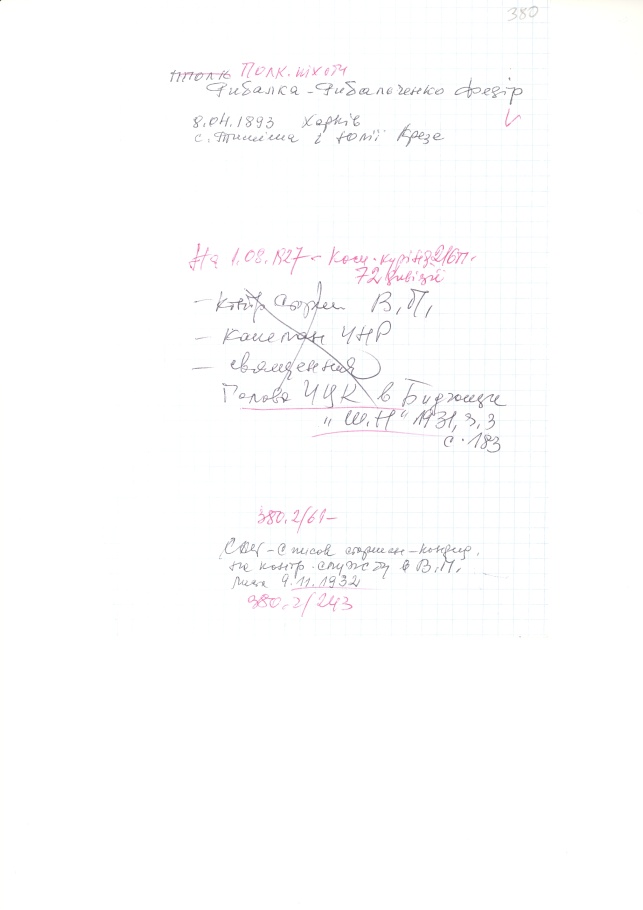 380
ппполк Полк. піхоти
Рибалка-Рибальченко Федір
8.04.1893 Харків
с. Тимоша і Юлії Крезе
На 1.08.1927 - Ком. куріня 216 п.
72 дивізії
- контр старш В.П,
- капелан УНР
- священник
Голова УЦК в Бидгощи
"Ш.Н" 1931, з, 3
с. 183
380.2/61-
САУ-Список старшин-контр.
на контр. службі в В.П.
9.11.1932
380.2/243